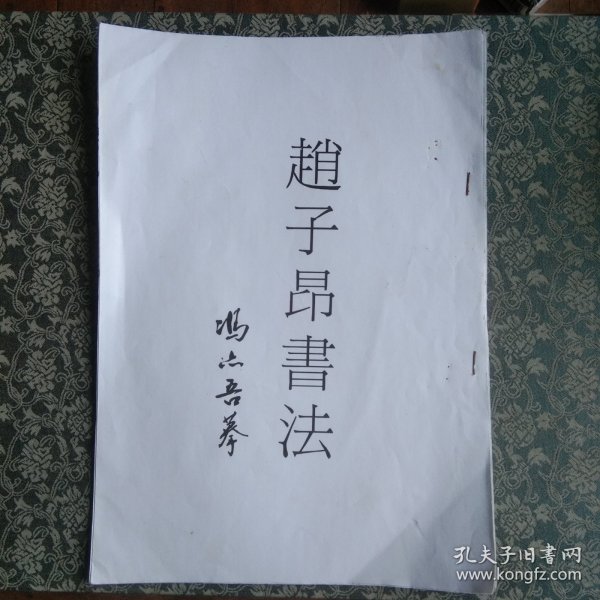 趙子昂書法
孔夫子旧書网
www.kongfz.com